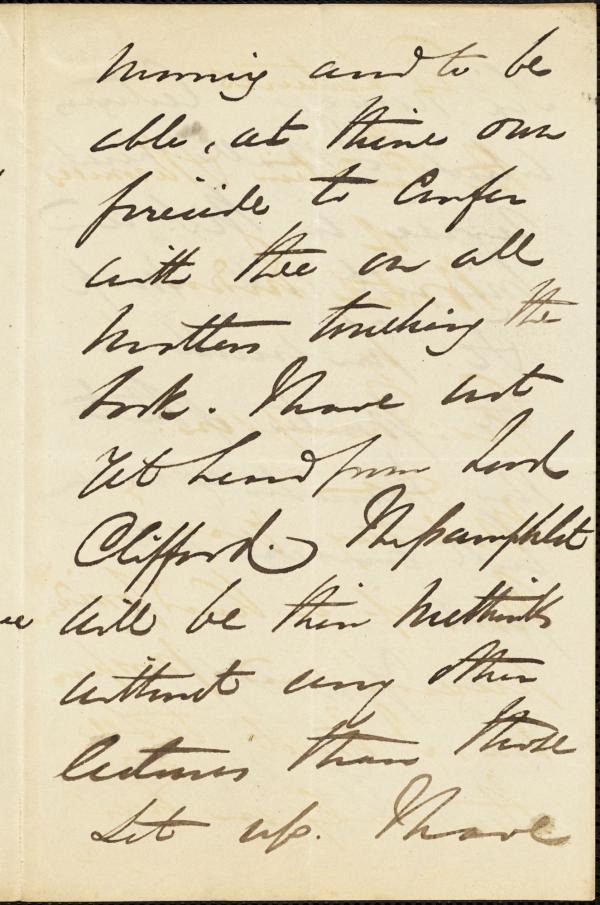 morning and to be
able, at thine own
fireside to confer
with thee on all
matters touching the
book. I have not
yet heard from Lord
Clifford. The pamphlet
will be thin methinks
without any other
lectures than those
set up. I have